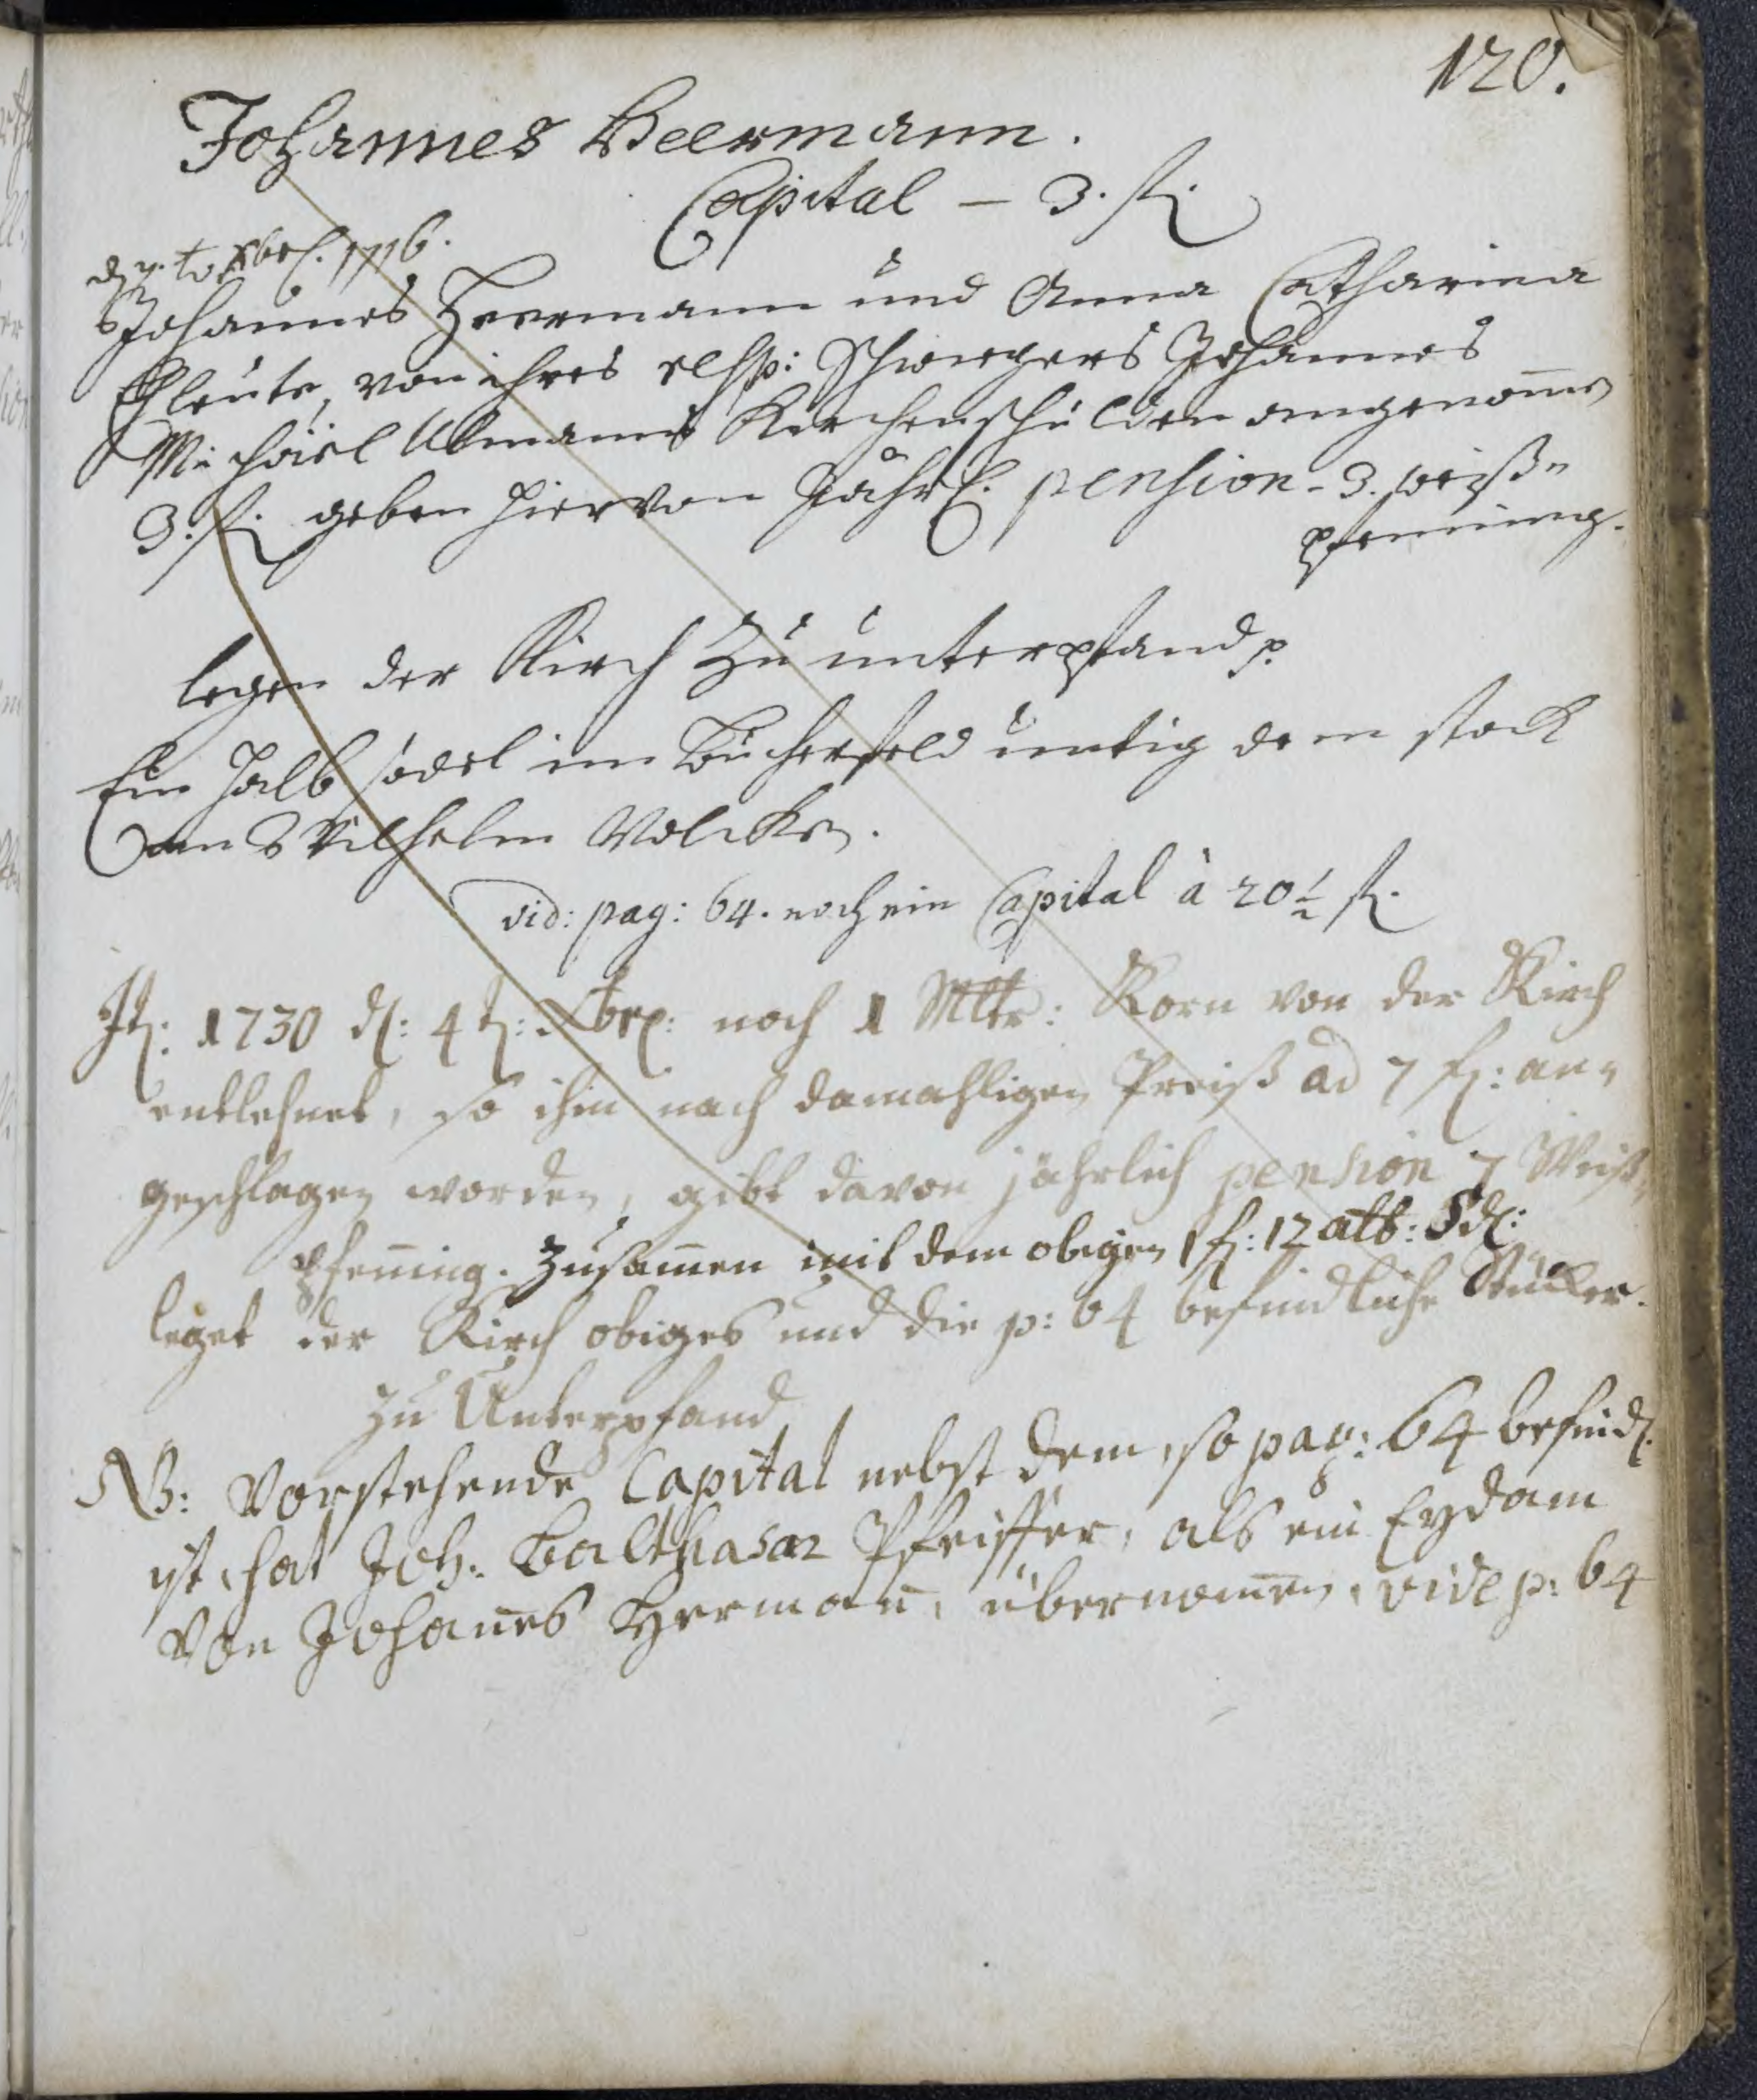 120.
Johannes Heermann.
Capital – 3. fl.
d. 7. t. Xbrl. 1716.
Johannes Heermann und Anna Catharina
Ehleute, von ihres Schwegers Johannes
Michäel Ulmanns Kirchenschulden angenom̄en
3. fl. geben hiervon Jährl. pension – 3. weiß„
pfenning.
legen der Kirch zu unterpfand p.
Ein halb södel im Bucherfeld untig dem stock
an Wilhelm Volcken.
vid: pag: 64. noch ein Capital à 20½ fl.
It: 1730 d: 4 t: Xbrl: noch 1 Mltr: Korn von der Kirch
entlehnet, so ihm nach damahligen Preiß ad 7 fl: an„
geschlagen worden, gibt davon jährlich pension 7 Weiß„
pfen̄ing. Zusam̄en mit dem obigen 1 fl: 12 alb:
leget der Kirch obiges und die p: 64 befindliche Stücker.
zu Unterpfand
NB: Vorstehende Capital nebst dem, so pag: 64 befindl.
ist, hat Joh: Balthasar Pfeiffer, als ein Eydam
von Johan̄es Herman̄, übernom̄en, vide p: 64